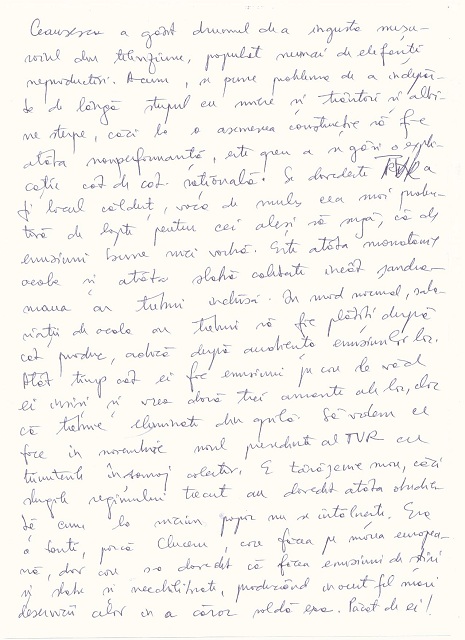 Ceaușescu a găsit drumul de a îngusta mușu-
roiul din televiziune, populat numai de elefanți
neproductivi. Acum, se pune problema de a îndepăr-
ta de lângă stupul cu miere și trântori și albi-
ne sterpe, căci la o asemenea construcție să fie
atâta nonperformanță, este greu a se găsi o expli-
cație cât de cât rațională! Se dovedește TVR a
fi locul călduț, vaca de muls cea mai produc-
tivă de lapte pentru cei aleși să sugă, că de
emisiuni bune nici vorbă. Este atâta monotonie
acolo și atâta slabă calitate încât
ar trebui închisă. În mod normal, sala-
riații de acolo ar trebui să fie plătiți după
cât produc, adică după audiența emisiunilor lor.
Atât timp cât ei fac emisiuni pe care le văd
ei înșiși și vreo două trei amante ale lor, clar
că trebuie eliminate din grilă. Să vedem ce
face în noiembrie noul președinte al TVR cu
E căci
slugile regimului trecut au dovedit atâta obedien-
ță cum la niciun popor nu se întâlnește. Era
o care făcea pe
nă, dar care s-a dovedit că făcea emisiuni de știri
și slabe și neechilibrate, producând în acest fel mari
deservicii celor în a căror soldă era. Păcat de ei!